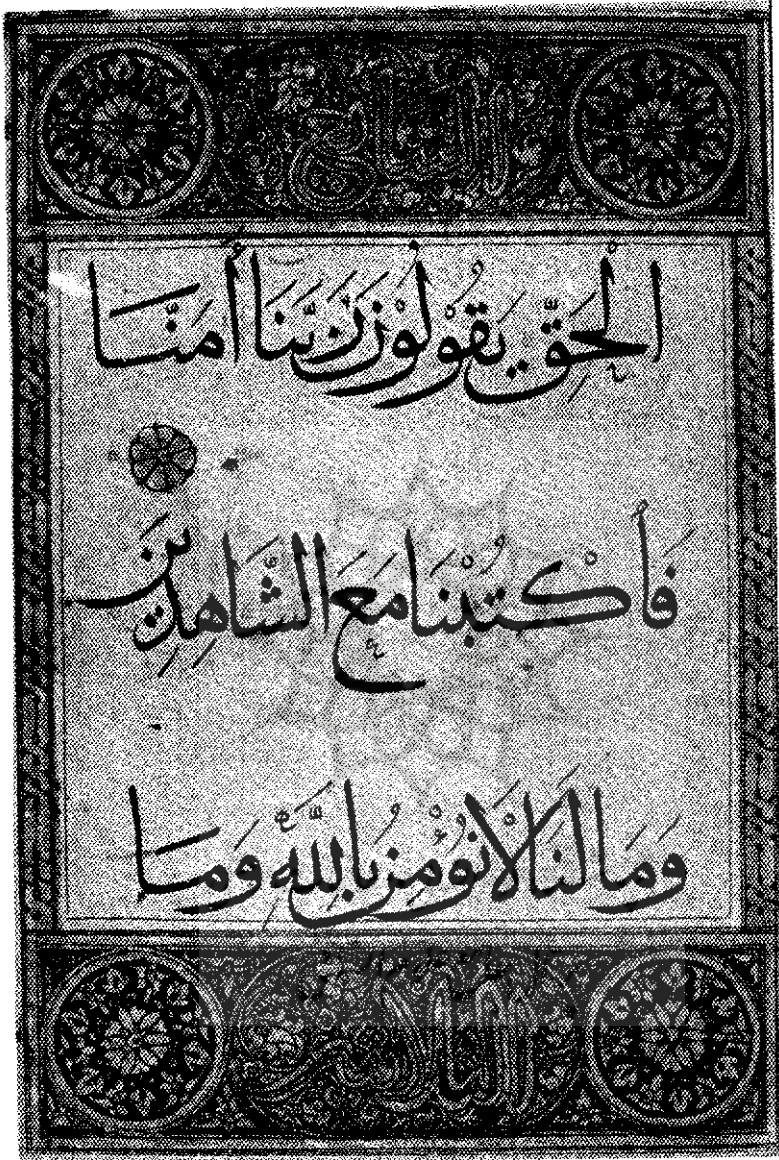 الْحَقِّ يَقُولُونَ رَبَّنَا آمَنَّا
فَاكْتُبْنَا مَعَ الشَّاهِدِينَ
وَمَا لَنَا لَا نُؤْمِنُ بِاللَّهِ وَمَا